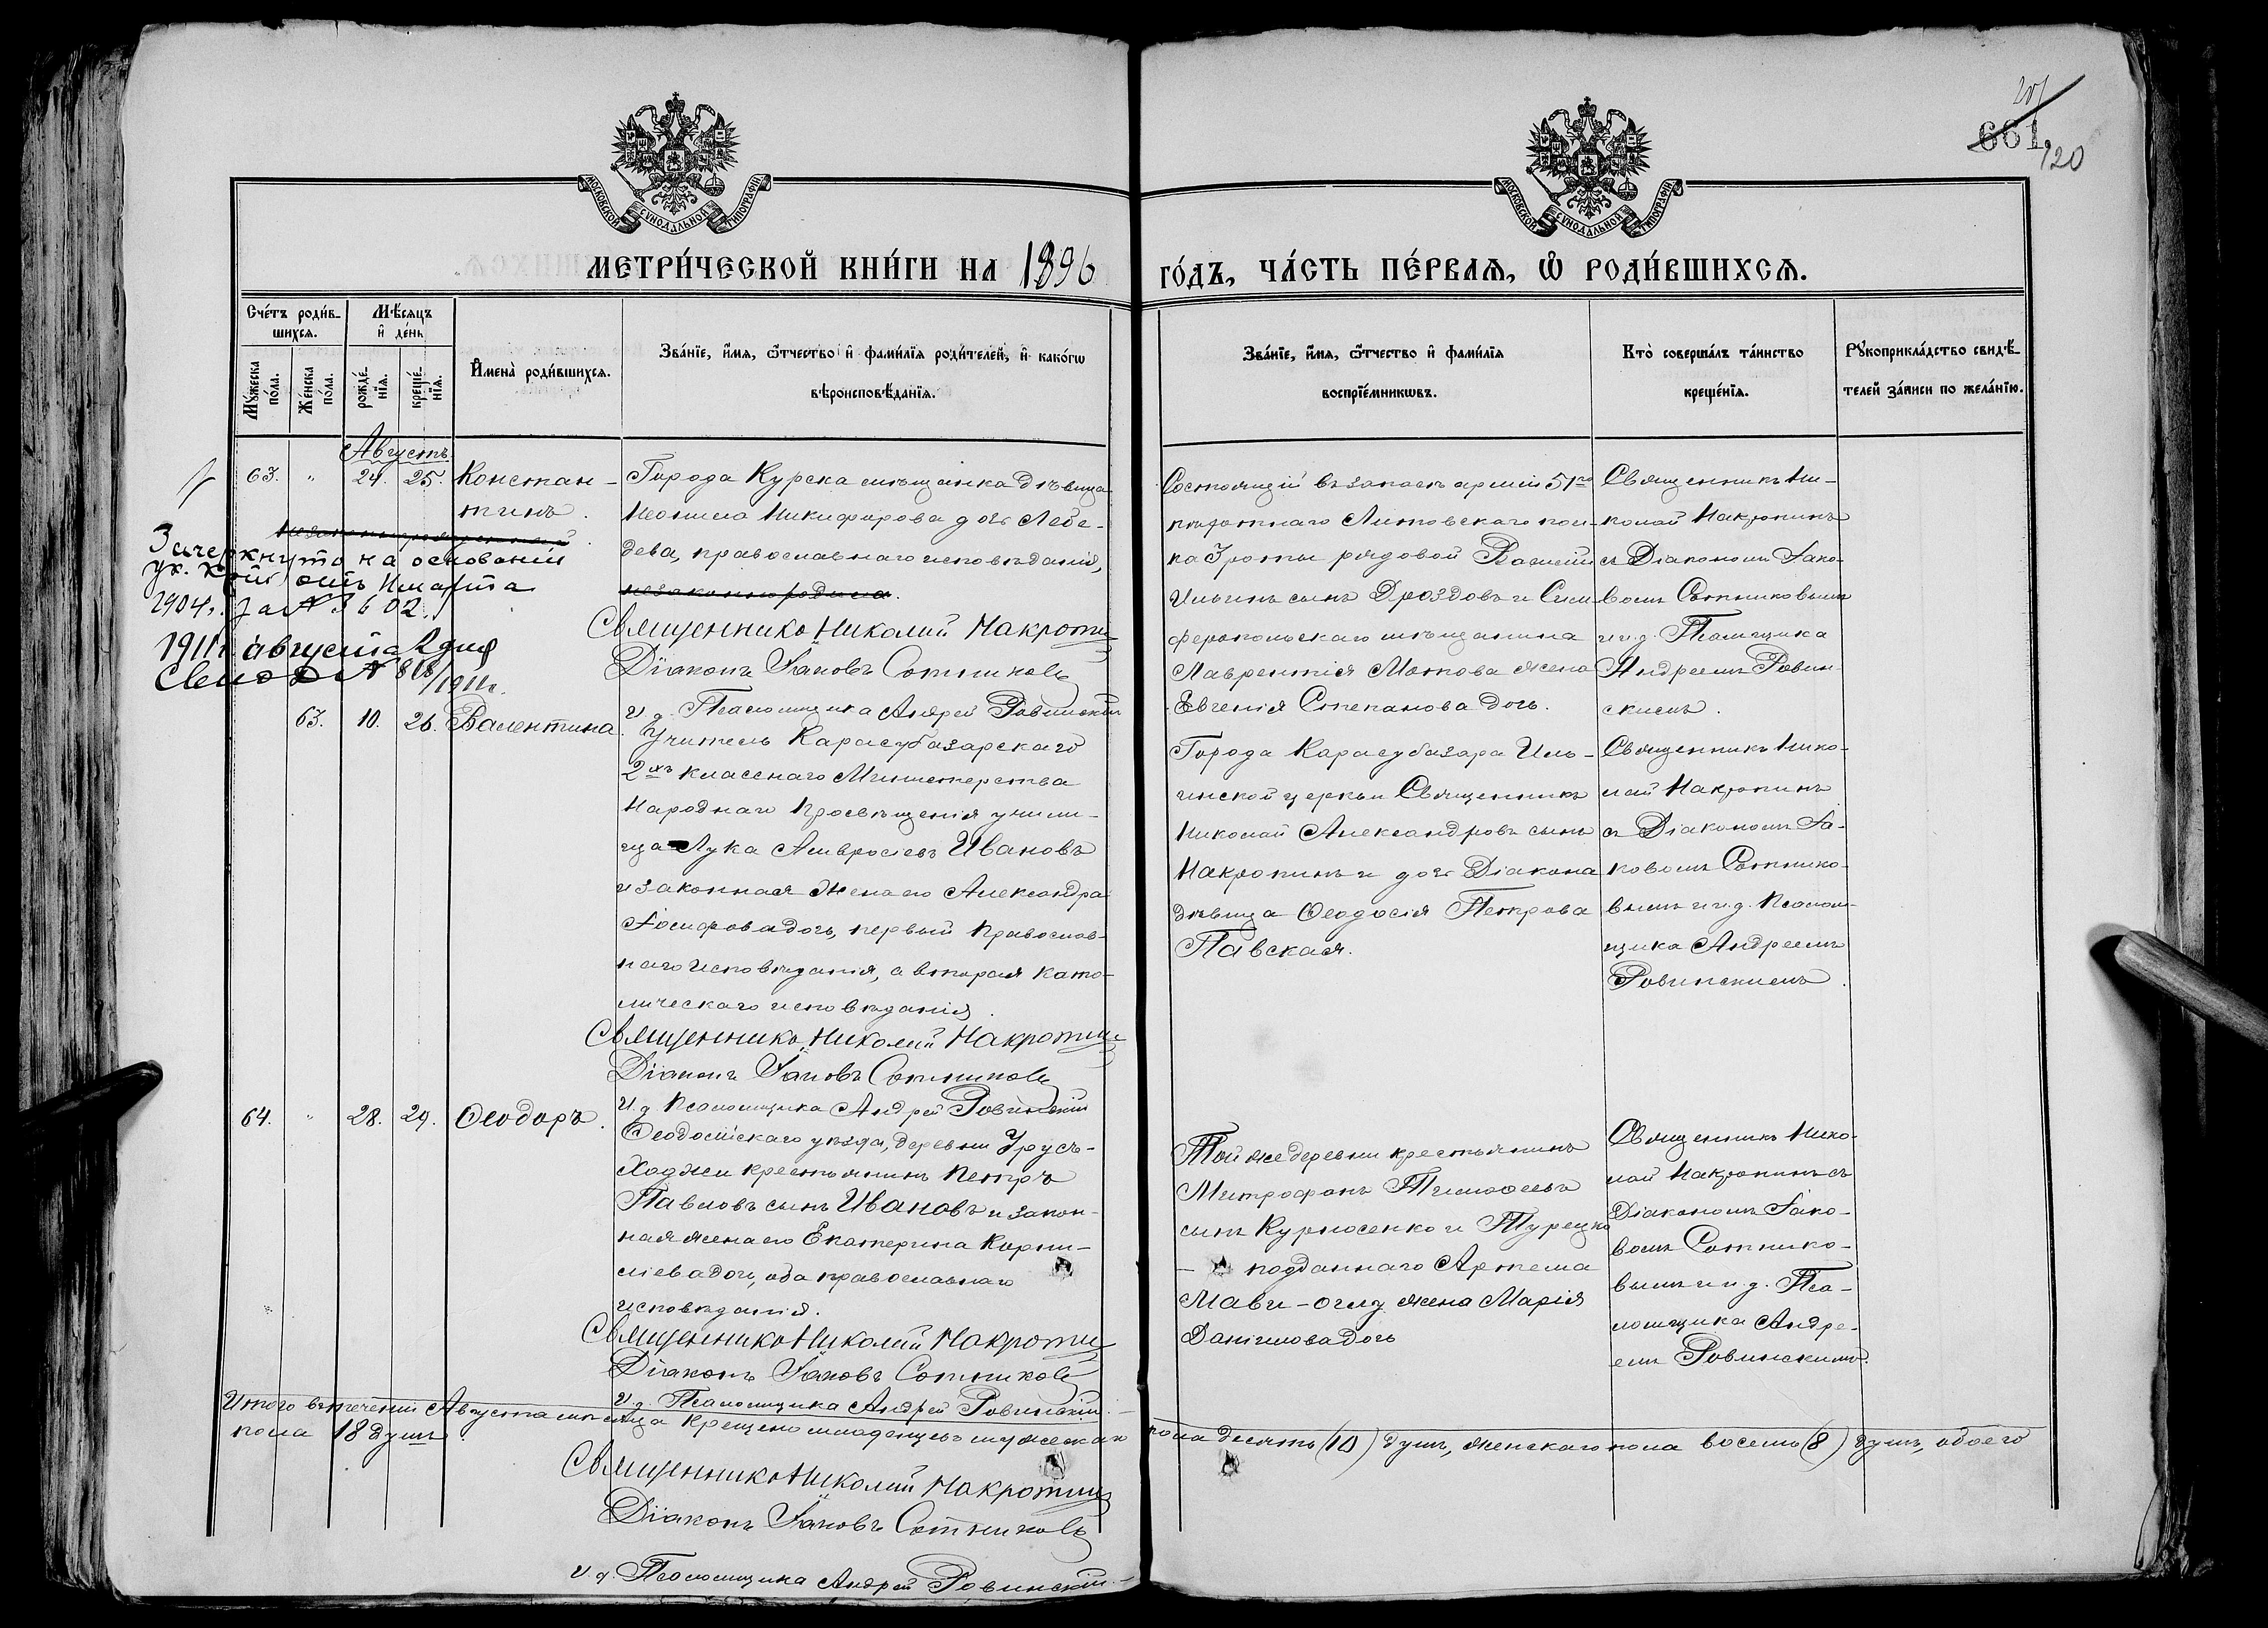 661.
120
МОСКОВСКОЙ СУНОДАЛЬНОЙ ТИПОГРАФІИ
МОСКОВСКОЙ СУНОДАЛЬНОЙ ТИПОГРАФІИ
МЕТРИ́ЧЕСКОЙ КНИ́ГИ НА 1896 ГО́ДЪ, ЧА́СТЬ ПЕ́РВАѦ, Ѿ РОДИ́ВШИХСѦ.
Сче́тъ роди́в-
шихсѧ.
Мѣ́сѧцъ
и҆ де́нь
Мꙋ́жеска
по́ла.
Же́нска
по́ла.
рожде́-
нїѧ.
креще́-
нїѧ.
И҆мена̀ роди́вшихсѧ.
Зва́нїе, и҆́мѧ, ѻ҆́тчество и҆ фами́лїѧ роди́телей, и҆ како́гѡ
вѣроисповѣ́данїѧ.
Зва́нїе, и҆́мѧ, ѻ҆́тчество и҆ фами́лїѧ
воспрїе́мникѡвъ.
Кто̀ соверша́лъ та́инство
креще́нїѧ.
Рꙋкоприкла́дство свидѣ́-
телей за́писи по жела́нїю.
Августъ
63. " 24. 25. Констан-
тинъ.
Зачеркнуто на основаніи
ук. Конс. отъ 11 марта
1904 г. за № 3602.
1911 г. августа 2 дня
Свид №818/1911 г.
Города Курска мѣщанка дѣвица
Неонила Никифорова дочь Лебе-
дева, православнаго исповѣданія,
незаконнородила.
Священникъ Николай Макротин
Діаконъ Іаковъ Сотниковъ
И. д. Псаломщика Андрей Ровинскій
Состоящій въ запасѣ арміи 51го
пѣхотнаго Литовскаго пол-
ка 3 роты рядовой Василій
Ильинъ сынъ Дроздовъ и Сим-
феропольскаго мѣщанина
Лаврентія Мотова жена
Евгенія Степанова дочь.
Священникъ Ни-
колай Макротинъ
съ Діакономъ Іако-
вомъ Сотниковымъ
и и. д. Псаломщика
Андреемъ Ровин-
скимъ.
63. 10. 26. Валентина.
Учитель Карасубазарскаго
2хъ класснаго Министерства
Народнаго Просвѣщенія учили-
ща Лука Амвросіевъ Ивановъ
и законная жена его Александра
Іосифова дочь, первый Православ-
наго исповѣданія, а вторая като-
лическаго исповѣданія.
Священникъ Николай Макротин
Діаконъ Іаковъ Сотниковъ
И. д. Псаломщика Андрей Ровинскій
Города Карасубазара Иль-
инской церкви Священникъ
Николай Александровъ сынъ
Макротинъ и дочь Діакона
дѣвица Ѳеодосія Петрова
Павская.
Священникъ Нико-
лай Макротинъ
съ Діакономъ Іа-
ковомъ Сотнико-
вымъ и и. д. Псалом-
щика Андреемъ
Ровинскимъ.
64. " 28. 29. Ѳеодоръ.
Ѳеодосійскаго уѣзда, деревни Урусъ-
Ходжи крестьянинъ Петръ
Павловъ сынъ Ивановъ и закон-
ная жена его Екатерина Корни-
ліева дочь, оба православнаго
исповѣданія.
Священникъ Николай Макротин
Діаконъ Іаковъ Сотниковъ
И. д. Псаломщика Андрей Ровинскій.
Той же деревни крестьянинъ
Митрофанъ Тимоѳеевъ
сынъ Курносенко и Турецко-
подданнаго Артема
Мави-оглу жена Марія
Даніилова дочь
Священникъ Нико-
лай Макротинъ съ
Діакономъ Іако-
вомъ Сотнико-
вымъ и и. д. Пса-
ломщика Андре-
емъ Ровинскимъ.
Итого въ теченіи Августа мѣсяца крещено младенцевъ мужескаго пола десять (10) душъ, женскаго пола восемь (8) душъ, обоего
пола 18 душъ.
Священникъ Николай Макротин
Діаконъ Іаковъ Сотниковъ
И. д. Псаломщика Андрей Ровинскій.